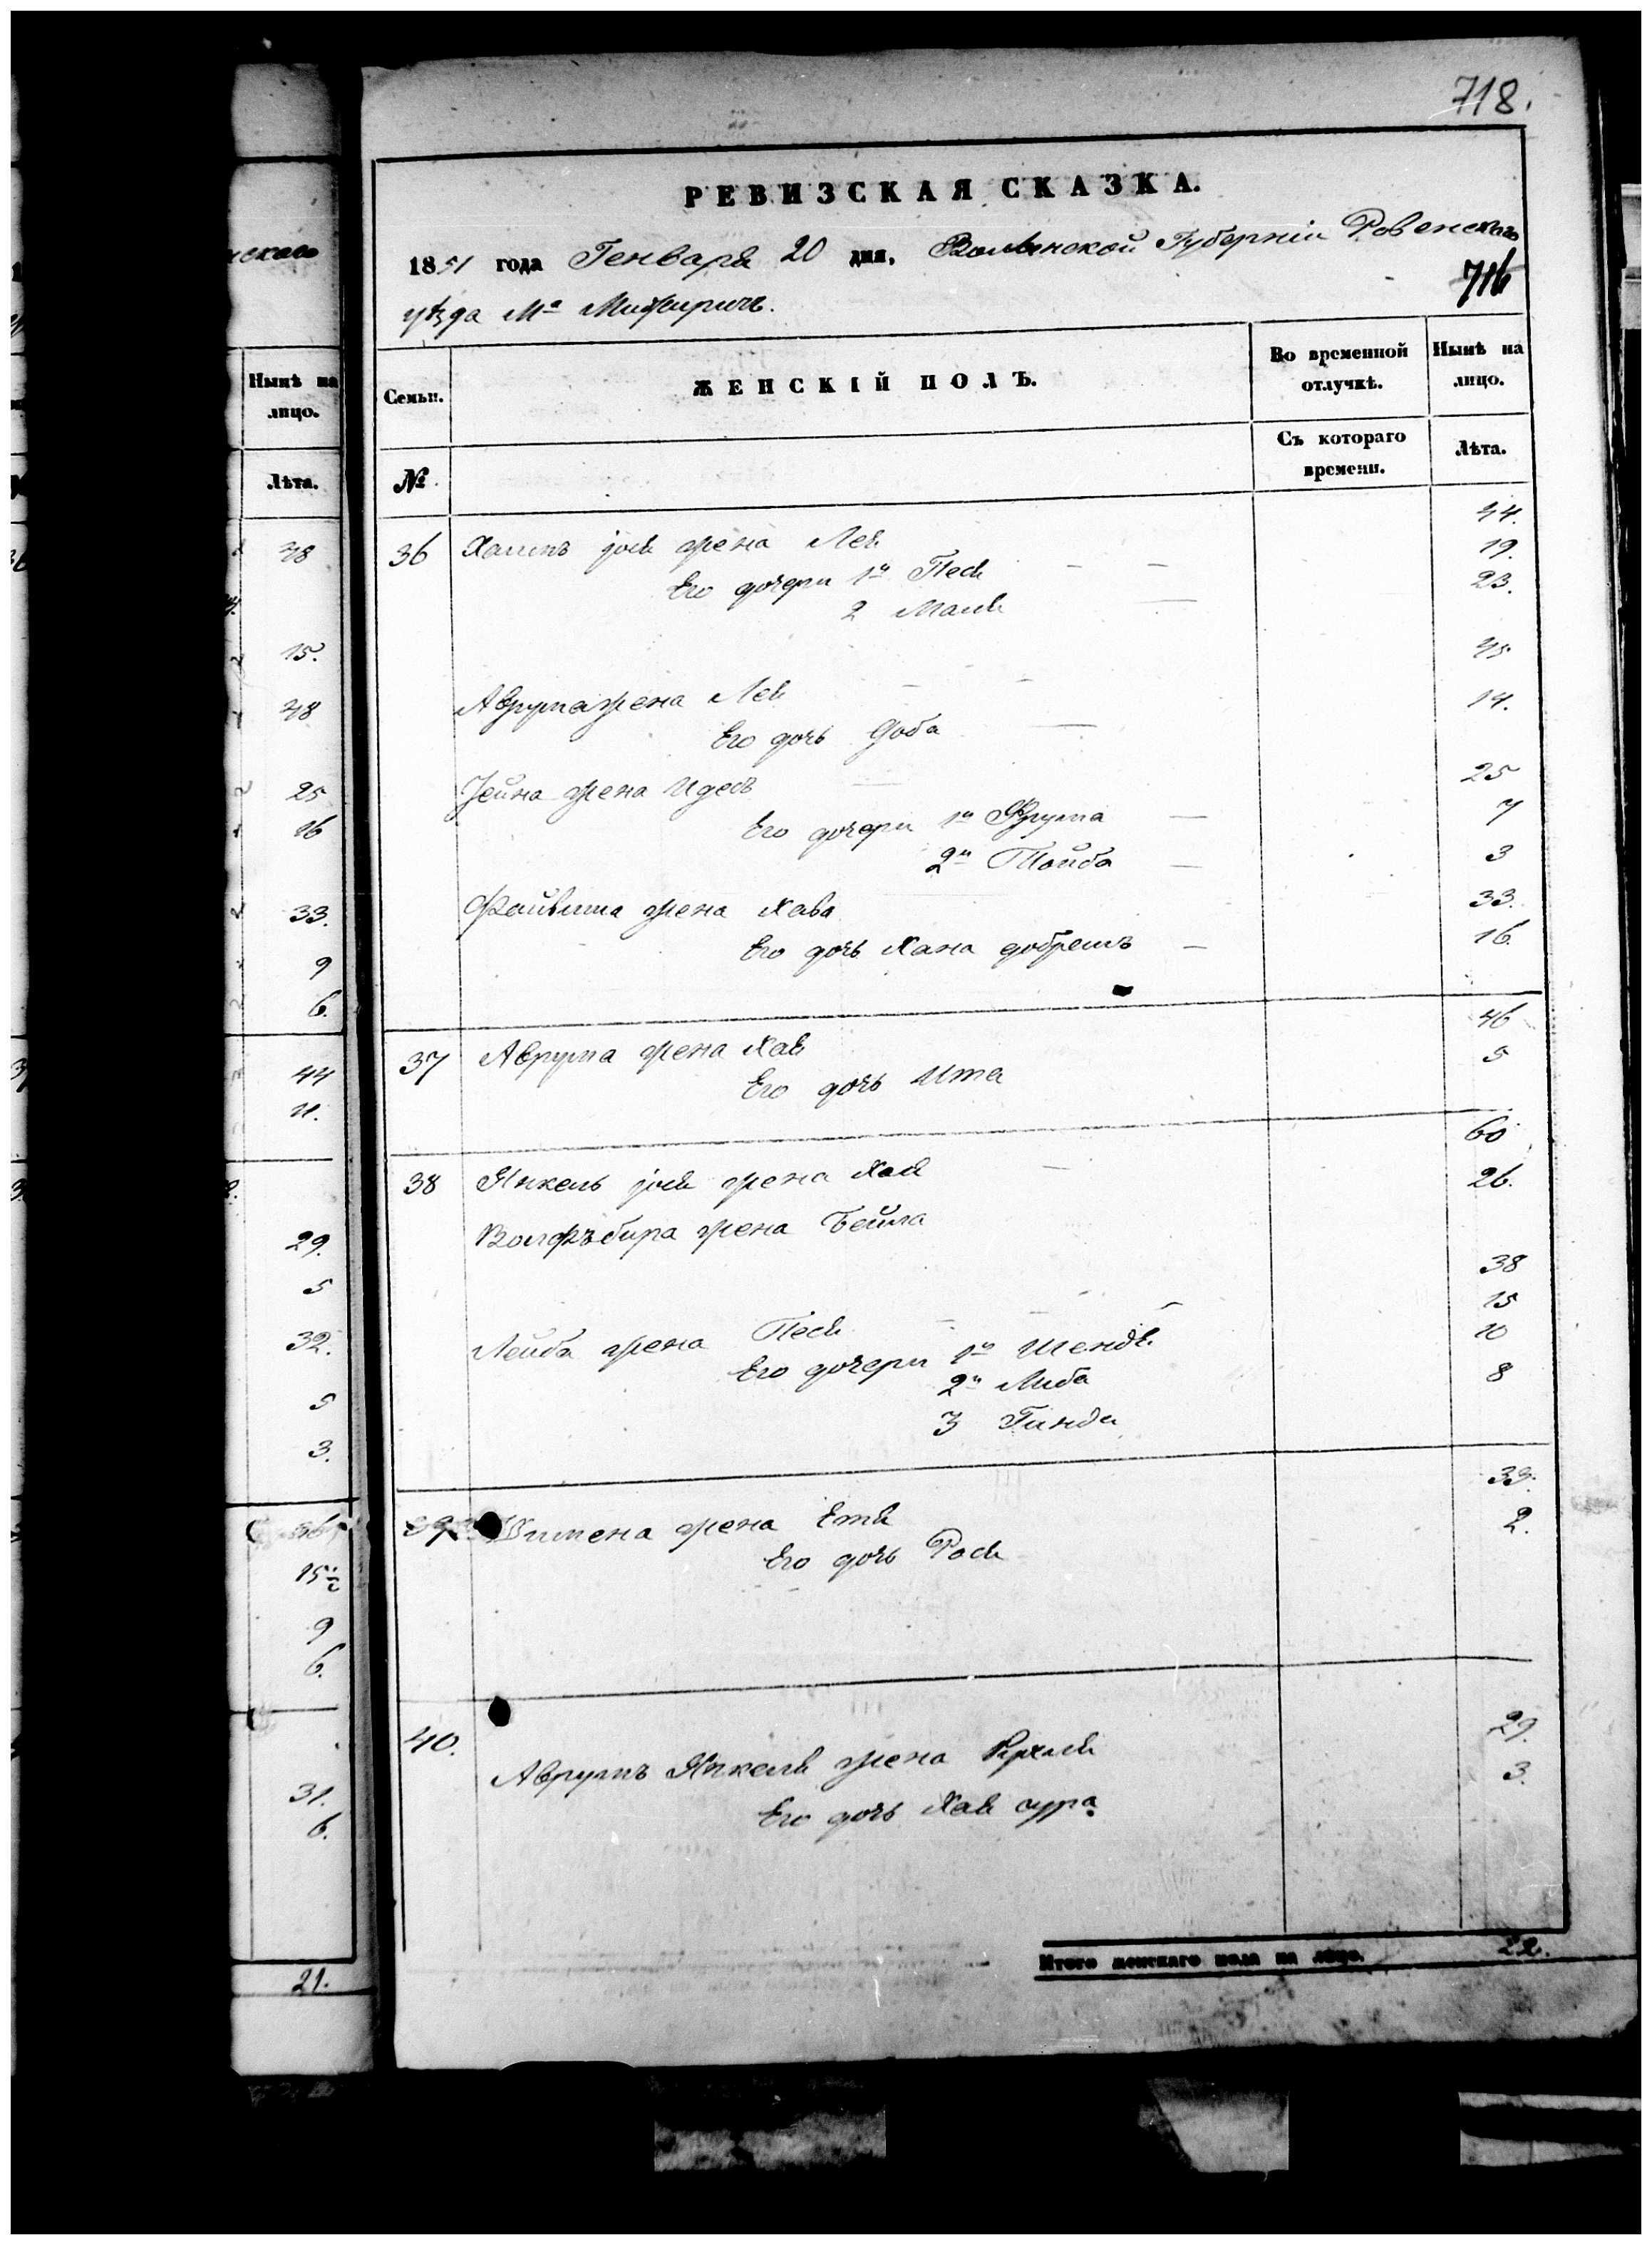 718.
РЕВИЗСКАЯ СКАЗКА.
1851 года Генваря 20 дня, Волынской Губерніи Ровенскаго
716
уѣзда Мª Межиричъ.
нскаго
Нынѣ на лицо.
Лѣта.
48
15.
48
25
16
33.
9
6.
44
11.
29.
5
32.
5
3.
15
9
6.
31.
6.
21.
Семьи.
ЖЕНСКІЙ ПОЛЪ.
Во временной отлучкѣ.
Нынѣ на лицо.
№
Съ котораго времени.
Лѣта.
36 жена Лея 44.
Его дочери 1я Песя 19.
2 Маля 23.
Аврума жена Лея 45
Его дочь Доба 14.
жена Идесъ 25
Его дочери 1я Фрума 7
2я Тойба 3
Файвиша жена Хава 33.
Его дочь Хана добришъ 16.
37 Аврума жена Хая 46
Его дочь Ита 5
38 Янкель жена Хая 60
Вольфъбира жена Бейла 26.
Лейба жена Песя 38
Его дочери 1я Шендля 15
2я Либа 10
3 Гинда 8
39 жена Етя 33.
Его дочь Рося 2.
40. Аврумъ Янкеля жена Рухля 29.
Его дочь Хая сура 3.
Итого женскаго пола на лицо. 22.